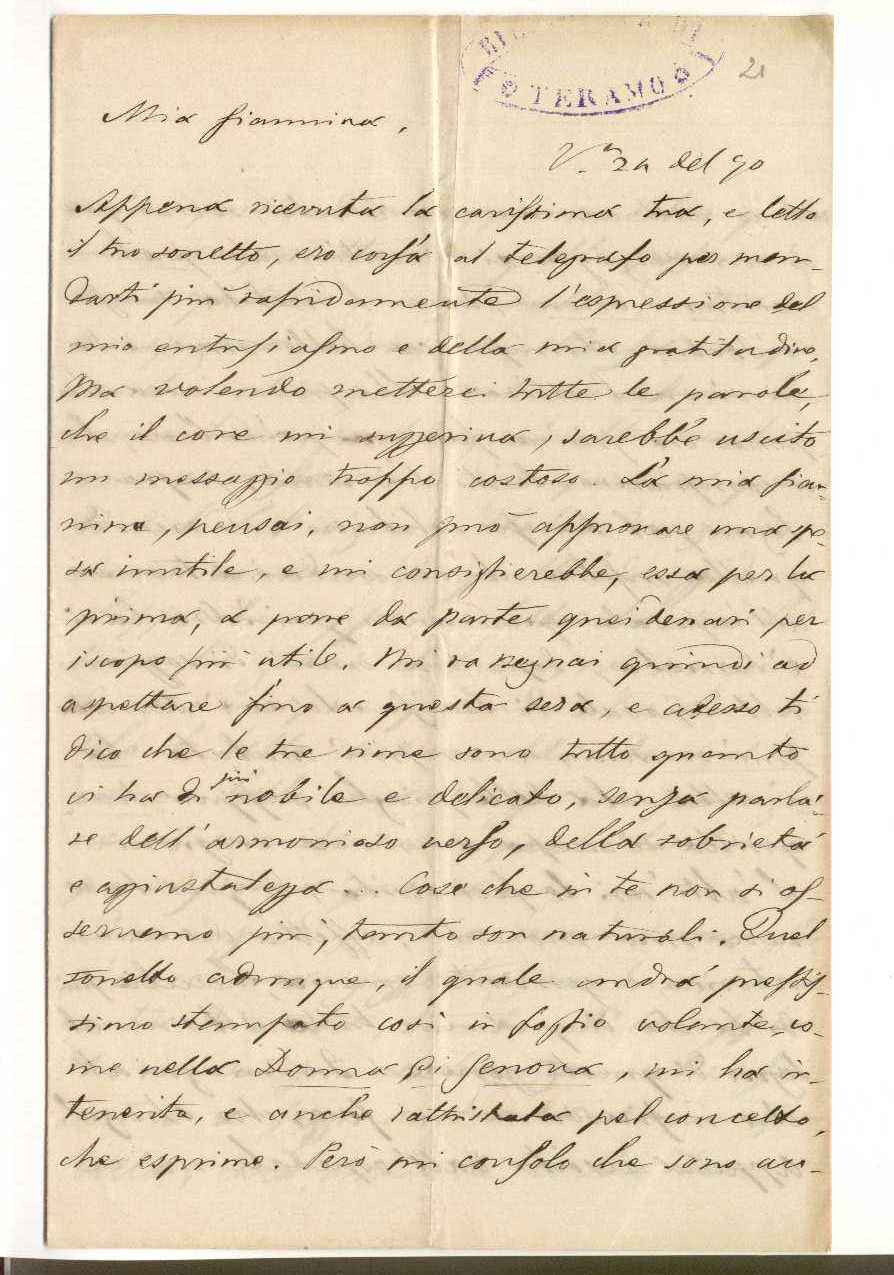 TERAMO
21
Mia Giannina,
del 90
Appena ricevuta la carissima tua, e letto
il tuo sonetto, ero corsa al telegrafo per man-
darti più rapidamente l'espressione del
mio entusiasmo e della mia gratitudine.
Ma volendo metterci tutte le parole,
che il core mi suggeriva, sarebbe uscito
un messaggio troppo costoso. La mia Gian-
nina, pensai, non può approvare una spe-
sa inutile, e mi consiglierebbe, essa per la
prima, a porre da parte quei denari per
iscopo più utile. Mi rassegnai quindi ad
aspettare fino a questa sera, e adesso ti
dico che le tue rime sono tutto quanto
vi ha di più nobile e delicato, senza parla-
re dell'armonioso verso, della sobrietà
e aggiustatezza... Cose che in te non si os-
servano più, tanto son naturali. Quel
sonetto adunque, il quale andrà prestis-
simo stampato così in foglio volante, co-
me nella Donna di Genova, mi ha in-
tenerita, e anche rattristata pel concetto,
che esprime. Però mi consolo che sono au-